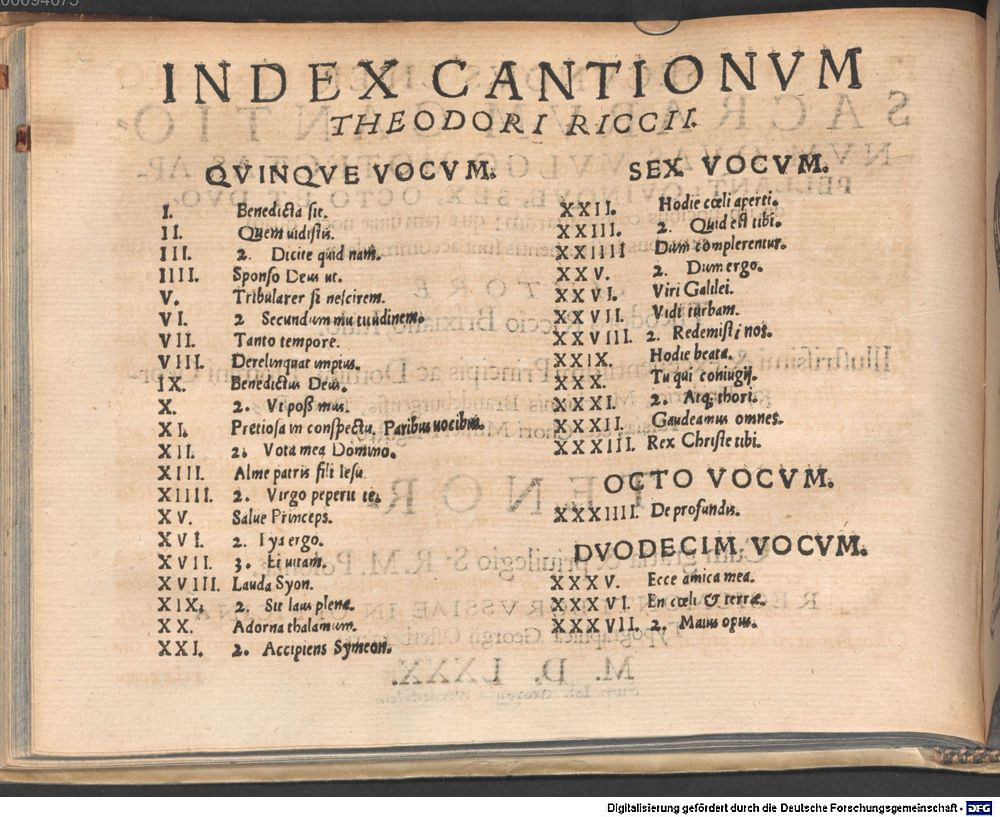 INDEX CANTIONVM
THEODORI RICCII.
QVINQVE VOCVM.
I. Benedicta sit.
II. Quem uidistis.
III. 2. Dicite quid nam.
IIII. Sponso Deus ut.
V. Tribularer si nescirem.
VI. 2 Secundum multitudinem.
VII. Tanto tempore.
VIII. Derelinquat impius.
IX. Benedictus Deus.
X. 2. Vt possimus.
XI. Pretiosa in conspectu. Paribus uocibus.
XII. 2. Vota mea Domino.
XIII. Alme patris fili Iesu.
XIIII. 2. Virgo peperit te.
XV. Salue Princeps.
XVI. 2. Eya ergo.
XVII. 3. Et uitam.
XVIII. Lauda Syon.
XIX. 2. Sit laus plena.
XX. Adorna thalamum.
XXI. 2. Accipiens Symeon.
SEX VOCVM.
XXII. Hodie cœli aperti.
XXIII. 2. Quid est tibi.
XXIIII Dum complerentur.
XXV. 2. Dum ergo.
XXVI. Viri Galilei.
XXVII. Vidi turbam.
XXVIII. 2. Redemisti nos.
XXIX. Hodie beata.
XXX. Tu qui coniugij.
XXXI. 2. Atq; thori.
XXXII. Gaudeamus omnes.
XXXIII. Rex Christe tibi.
OCTO VOCVM.
XXXIIII. De profundis.
DVODECIM VOCVM.
XXXV. Ecce amica mea.
XXXVI. En cœli & terræ.
XXXVII. 2. Maius opus.
Digitalisierung gefördert durch die Deutsche Forschungsgemeinschaft - DFG